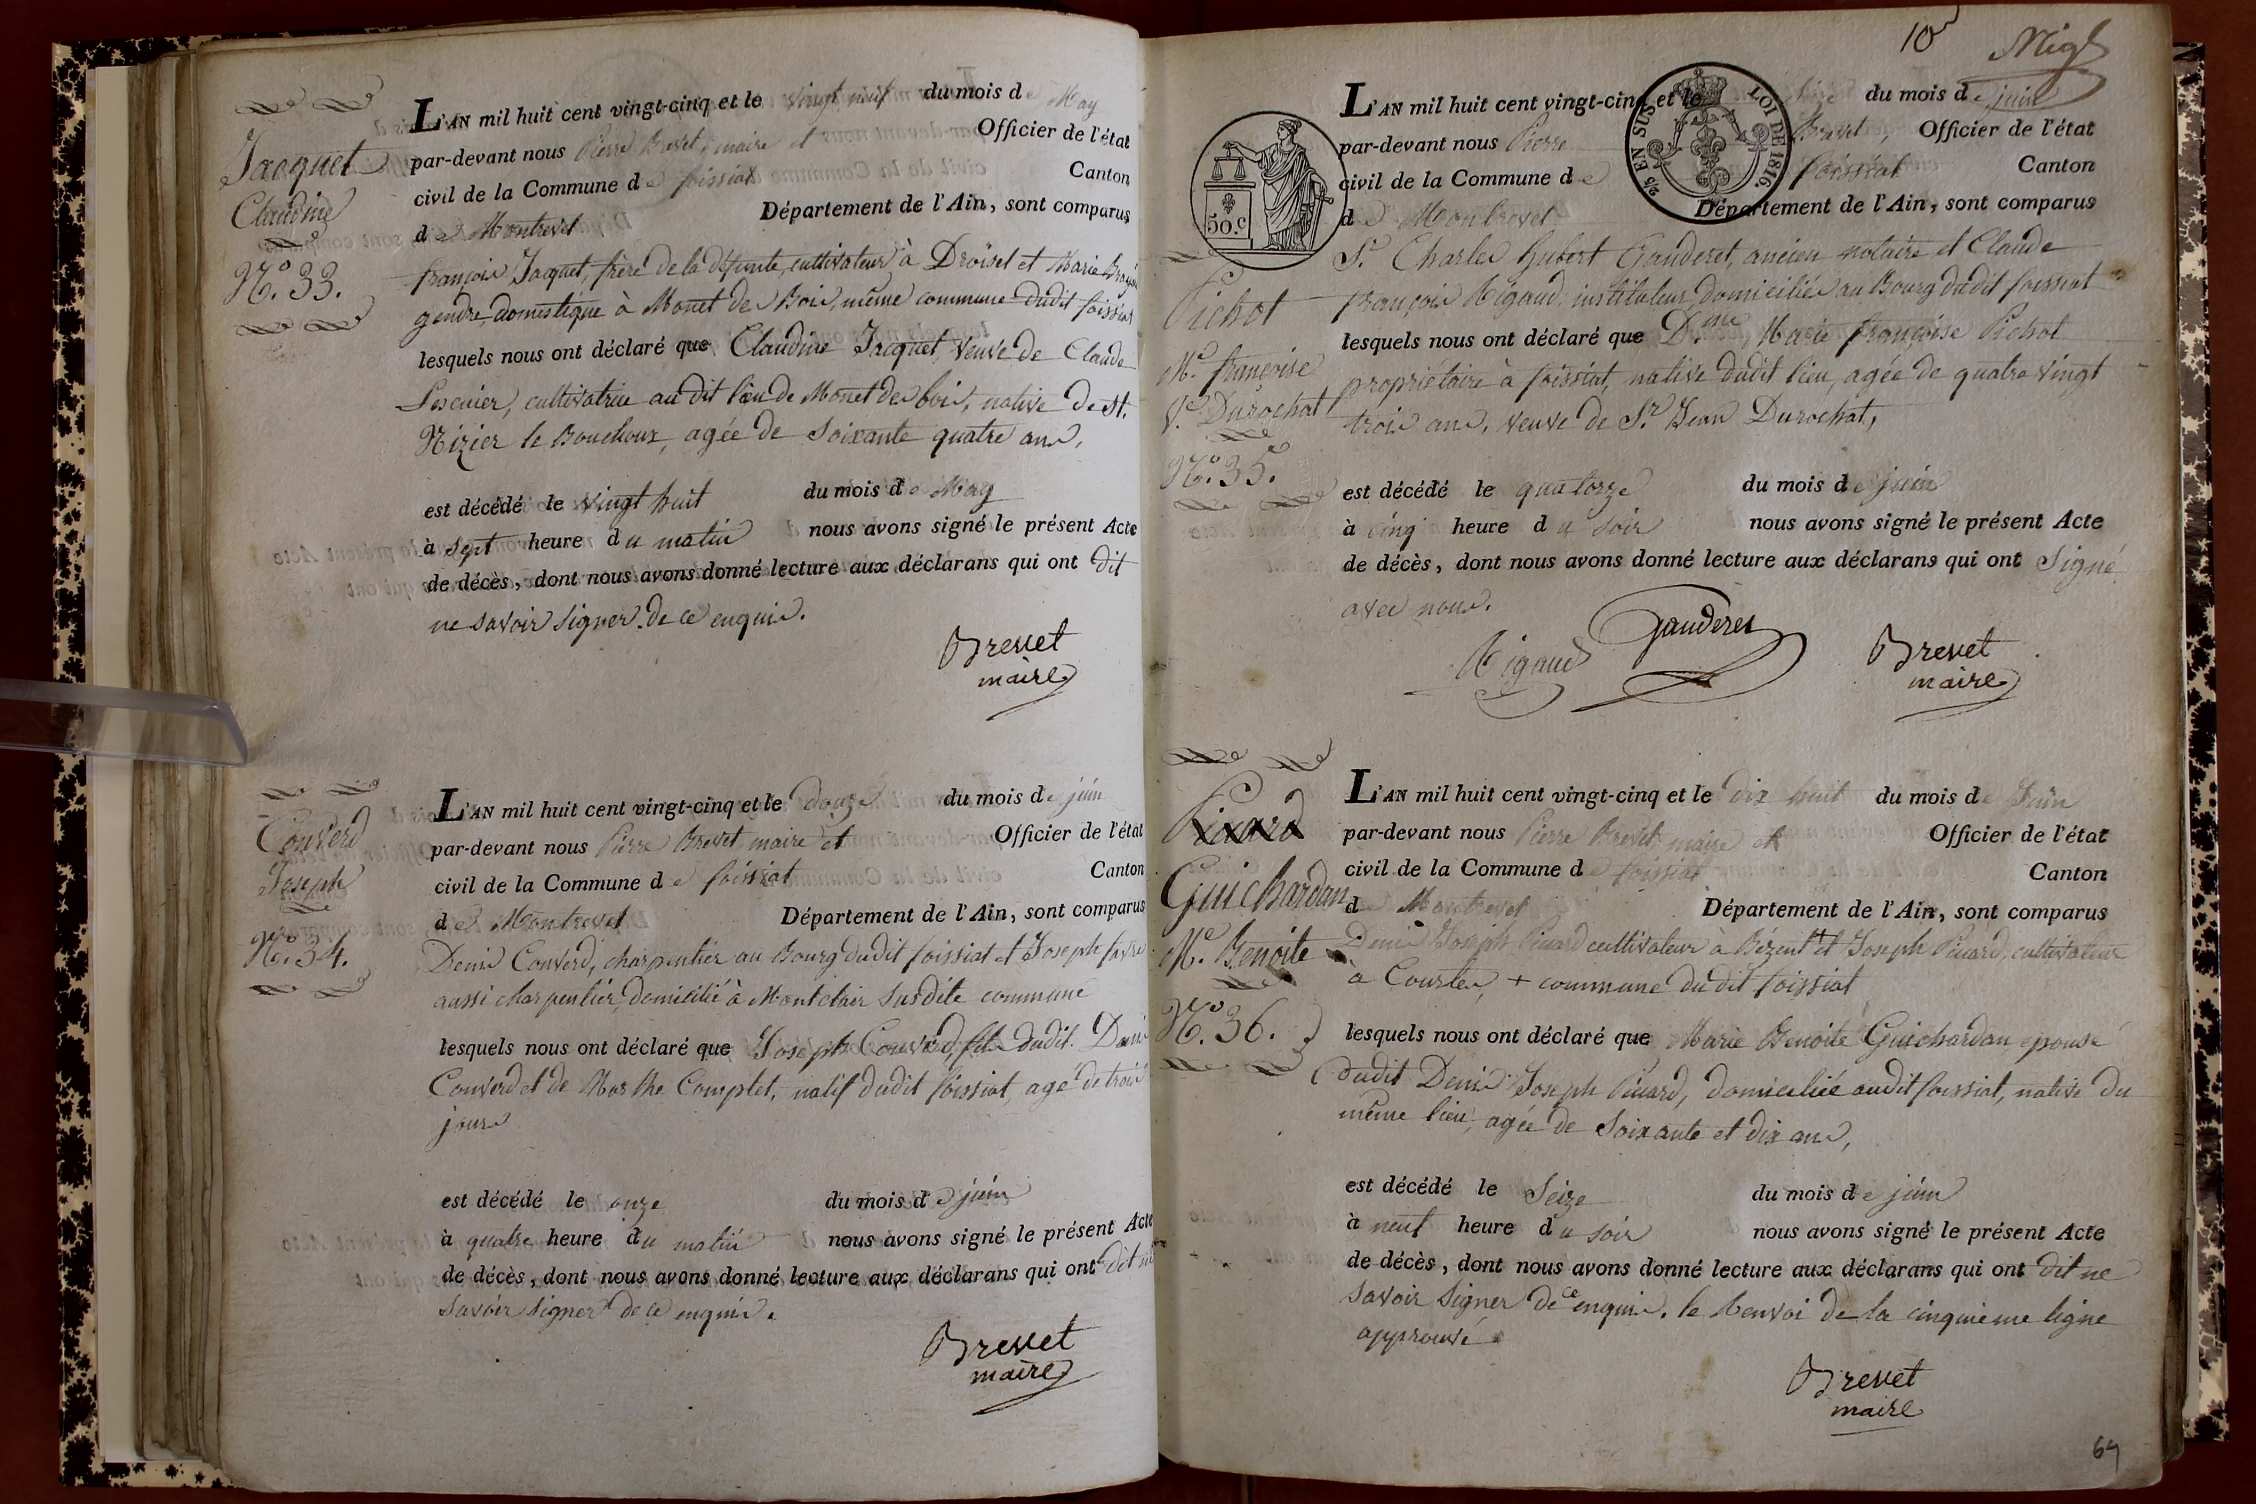 Jacquet
Claudine
N.° 33.
L'AN mil huit cent vingt-cinq et le vingt neuf du mois de May
par-devant nous Pierre Brevet, maire et Officier de l'état
civil de la Commune de foissiat Canton
de Montrevel Département de l'Ain, sont comparus
françois Jacquet, frère de la défunte, cultivateur à Droiset et Marie
gendre, domestique à Monet des Bois, même commune dudit foissiat
lesquels nous ont déclaré que Claudine Jacquet, veuve de Claude
cultivatrice au dit lieu de Monet des bois, native de St.
Nizier le Bouchoux, agée de Soixante quatre ans,
est décédé le vingt huit du mois de May
à sept heure du matin nous avons signé le présent Acte
de décès, dont nous avons donné lecture aux déclarans qui ont dit
ne savoir signer de ce enquis.
Brevet
maire
Converd
Joseph
N.° 34.
L'AN mil huit cent vingt-cinq et le douze du mois de juin
par-devant nous Pierre Brevet maire et Officier de l'état
civil de la Commune de foissiat Canton
de Montrevel Département de l'Ain, sont comparus
Denis Converd, charpentier au Bourg dudit foissiat et Joseph favre
aussi charpentier, domicilié à Montclair susdite commune
lesquels nous ont déclaré que Joseph Converd, fils dudit Denis
Converd et de Marthe Complet, natif dudit foissiat, agé de trois
jours
est décédé le onze du mois de juin
à quatre heure du matin nous avons signé le présent Acte
de décès, dont nous avons donné lecture aux déclarans qui ont dit ne
savoir signer de ce enquis.
Brevet
maire
10
Pichot
Me. françoise
Ve. Durochat
N.° 35.
50.c
2/5 EN SUS
LOI DE 1816.
L'AN mil huit cent vingt-cinq et le du mois de juin
par-devant nous Pierre Brevet, Officier de l'état
civil de la Commune de foissiat Canton
de Montrevel Département de l'Ain, sont comparus
Sr. Charles hubert Gauderet, ancien notaire et Claude
françois Rigaud, instituteur, domiciliés au Bourg dudit foissiat
lesquels nous ont déclaré que Dme. Marie françoise Pichot
propriétaire à foissiat, native dudit lieu, agée de quatre vingt
trois ans, veuve de Sr. Jean Durochat,
est décédé le quatorze du mois de juin
à cinq heure du soir nous avons signé le présent Acte
de décès, dont nous avons donné lecture aux déclarans qui ont signé
avec nous.
Rigaud Gauderet Brevet
maire
Picard
Guichardan
Me. Benoite
N.° 36.
L'AN mil huit cent vingt-cinq et le dix huit du mois de Juin
par-devant nous Pierre Brevet maire et Officier de l'état
civil de la Commune de foissiat Canton
de Montrevel Département de l'Ain, sont comparus
Denis Joseph Picard cultivateur à Bézent et Joseph Picard, cultivateur
à Courtes, + commune dudit foissiat
lesquels nous ont déclaré que Marie Benoite Guichardan, epouse
dudit Denis Joseph Picard, domiciliée audit foissiat, native du
même lieu, agée de Soixante et dix ans,
est décédé le Seize du mois de juin
à neuf heure du soir nous avons signé le présent Acte
de décès, dont nous avons donné lecture aux déclarans qui ont dit ne
savoir signer de ce enquis. le Renvoi de la cinquieme ligne
approuvé
Brevet
maire
64